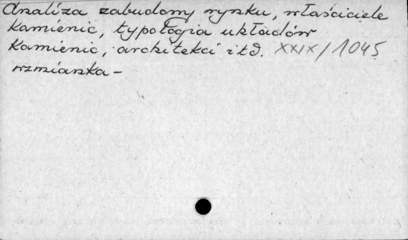 Analiza zabudowy rynku, właściciele
kamienic, typologia układów
kamienic, architekci itd. XXIX/1045
wzmianka -